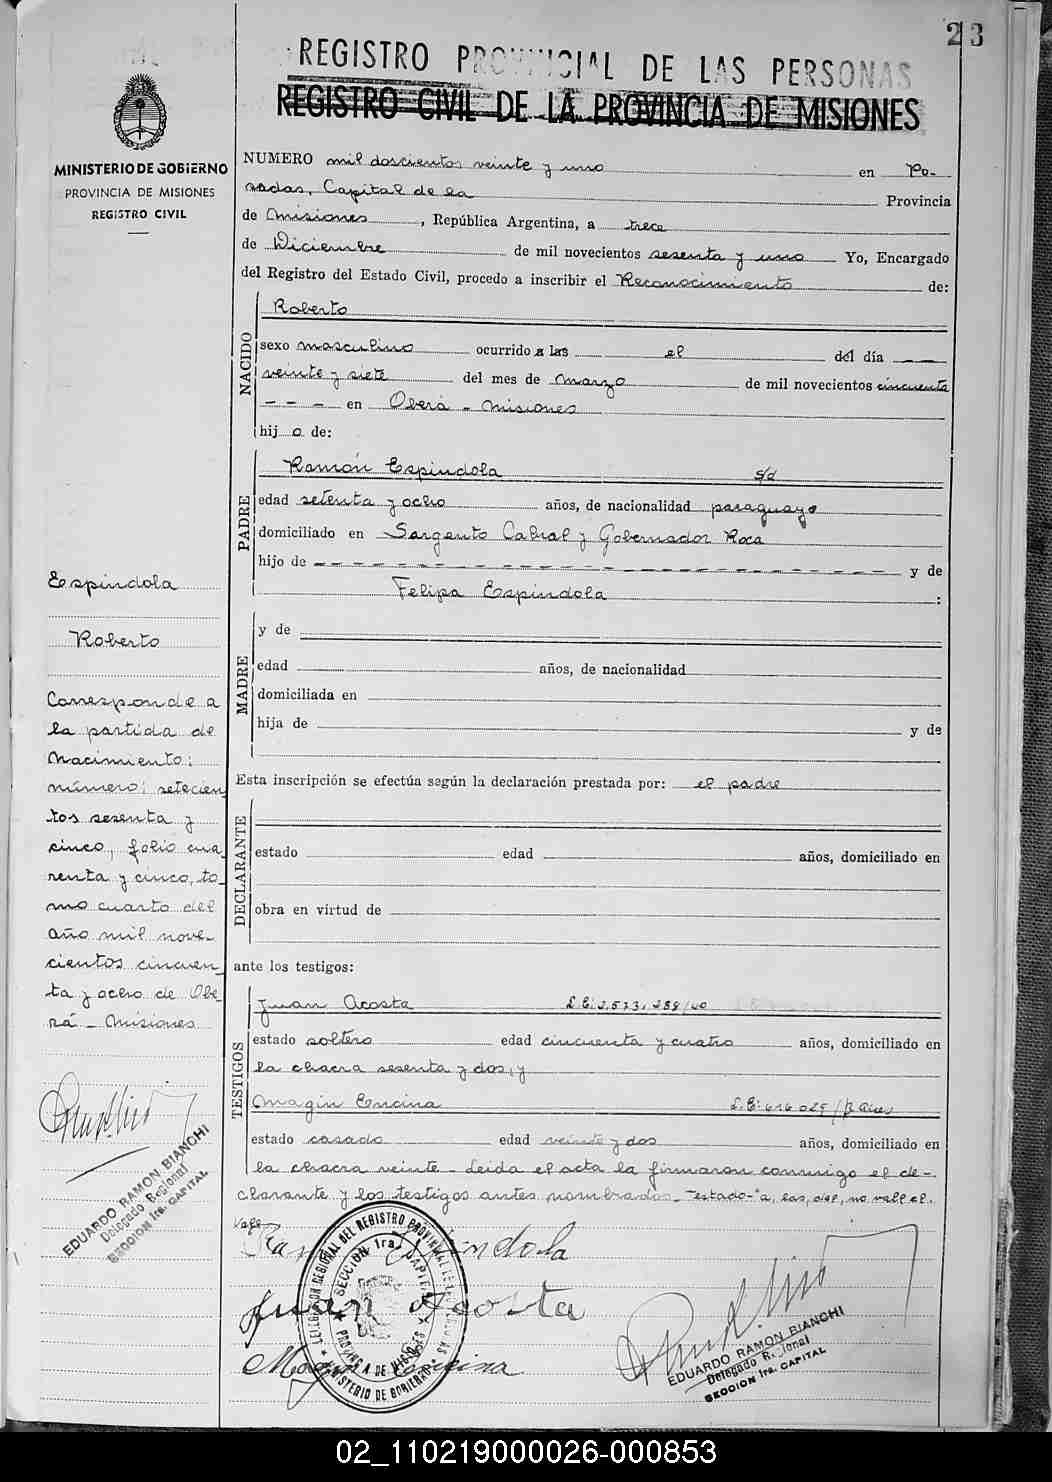 23
REGISTRO PROVINCIAL DE LAS PERSONAS
REGISTRO CIVIL DE LA PROVINCIA DE MISIONES
MINISTERIO DE GOBIERNO
PROVINCIA DE MISIONES
REGISTRO CIVIL
NUMERO mil doscientos veinte y uno en Po-
sadas, Capital de la Provincia
de Misiones, República Argentina, a trece
de Diciembre de mil novecientos sesenta y uno Yo, Encargado
del Registro del Estado Civil, procedo a inscribir el Reconocimiento de:
NACIDO
Roberto
sexo masculino ocurrido a las el del día
veinte y siete del mes de Marzo de mil novecientos cincuenta
- - - en Oberá - Misiones
hijo de:
PADRE
Ramón Espíndola s/d
edad setenta y ocho años, de nacionalidad paraguayo
domiciliado en Sargento Cabral y Gobernador Roca
hijo de y de
Felipa Espíndola :
MADRE
y de
edad años, de nacionalidad
domiciliada en
hija de y de
Esta inscripción se efectúa según la declaración prestada por: el padre
DECLARANTE
estado edad años, domiciliado en
obra en virtud de
ante los testigos:
TESTIGOS
Juan Acosta
estado soltero edad cincuenta y cuatro años, domiciliado en
la chacra sesenta y dos, y
Magin Encina
estado casado edad veinte y dos años, domiciliado en
la chacra veinte - Leida el acta la firmaron conmigo el de-
clarante y los testigos antes nombrados - estado - a, las, del, no vale el.
vale
Espíndola
Roberto
Corresponde a
la partida de
Nacimiento:
número: setecien
tos sesenta y
cinco, folio cua-
renta y cinco, to-
mo cuarto del
año mil nove-
cientos cincuen
ta y ocho de Obe-
rá - Misiones
EDUARDO RAMON BIANCHI
Delegado Regional
SECCION 1ra. CAPITAL
Ramón Espíndola
Juan Acosta
Magin Encina
DELEGACION REGIONAL DEL REGISTRO PROVINCIAL DE LAS PERSONAS
SECCION 1ra. CAPITAL
PROVINCIA DE MISIONES
MINISTERIO DE GOBIERNO
EDUARDO RAMON BIANCHI
Delegado Regional
SECCION 1ra. CAPITAL
02_110219000026-000853